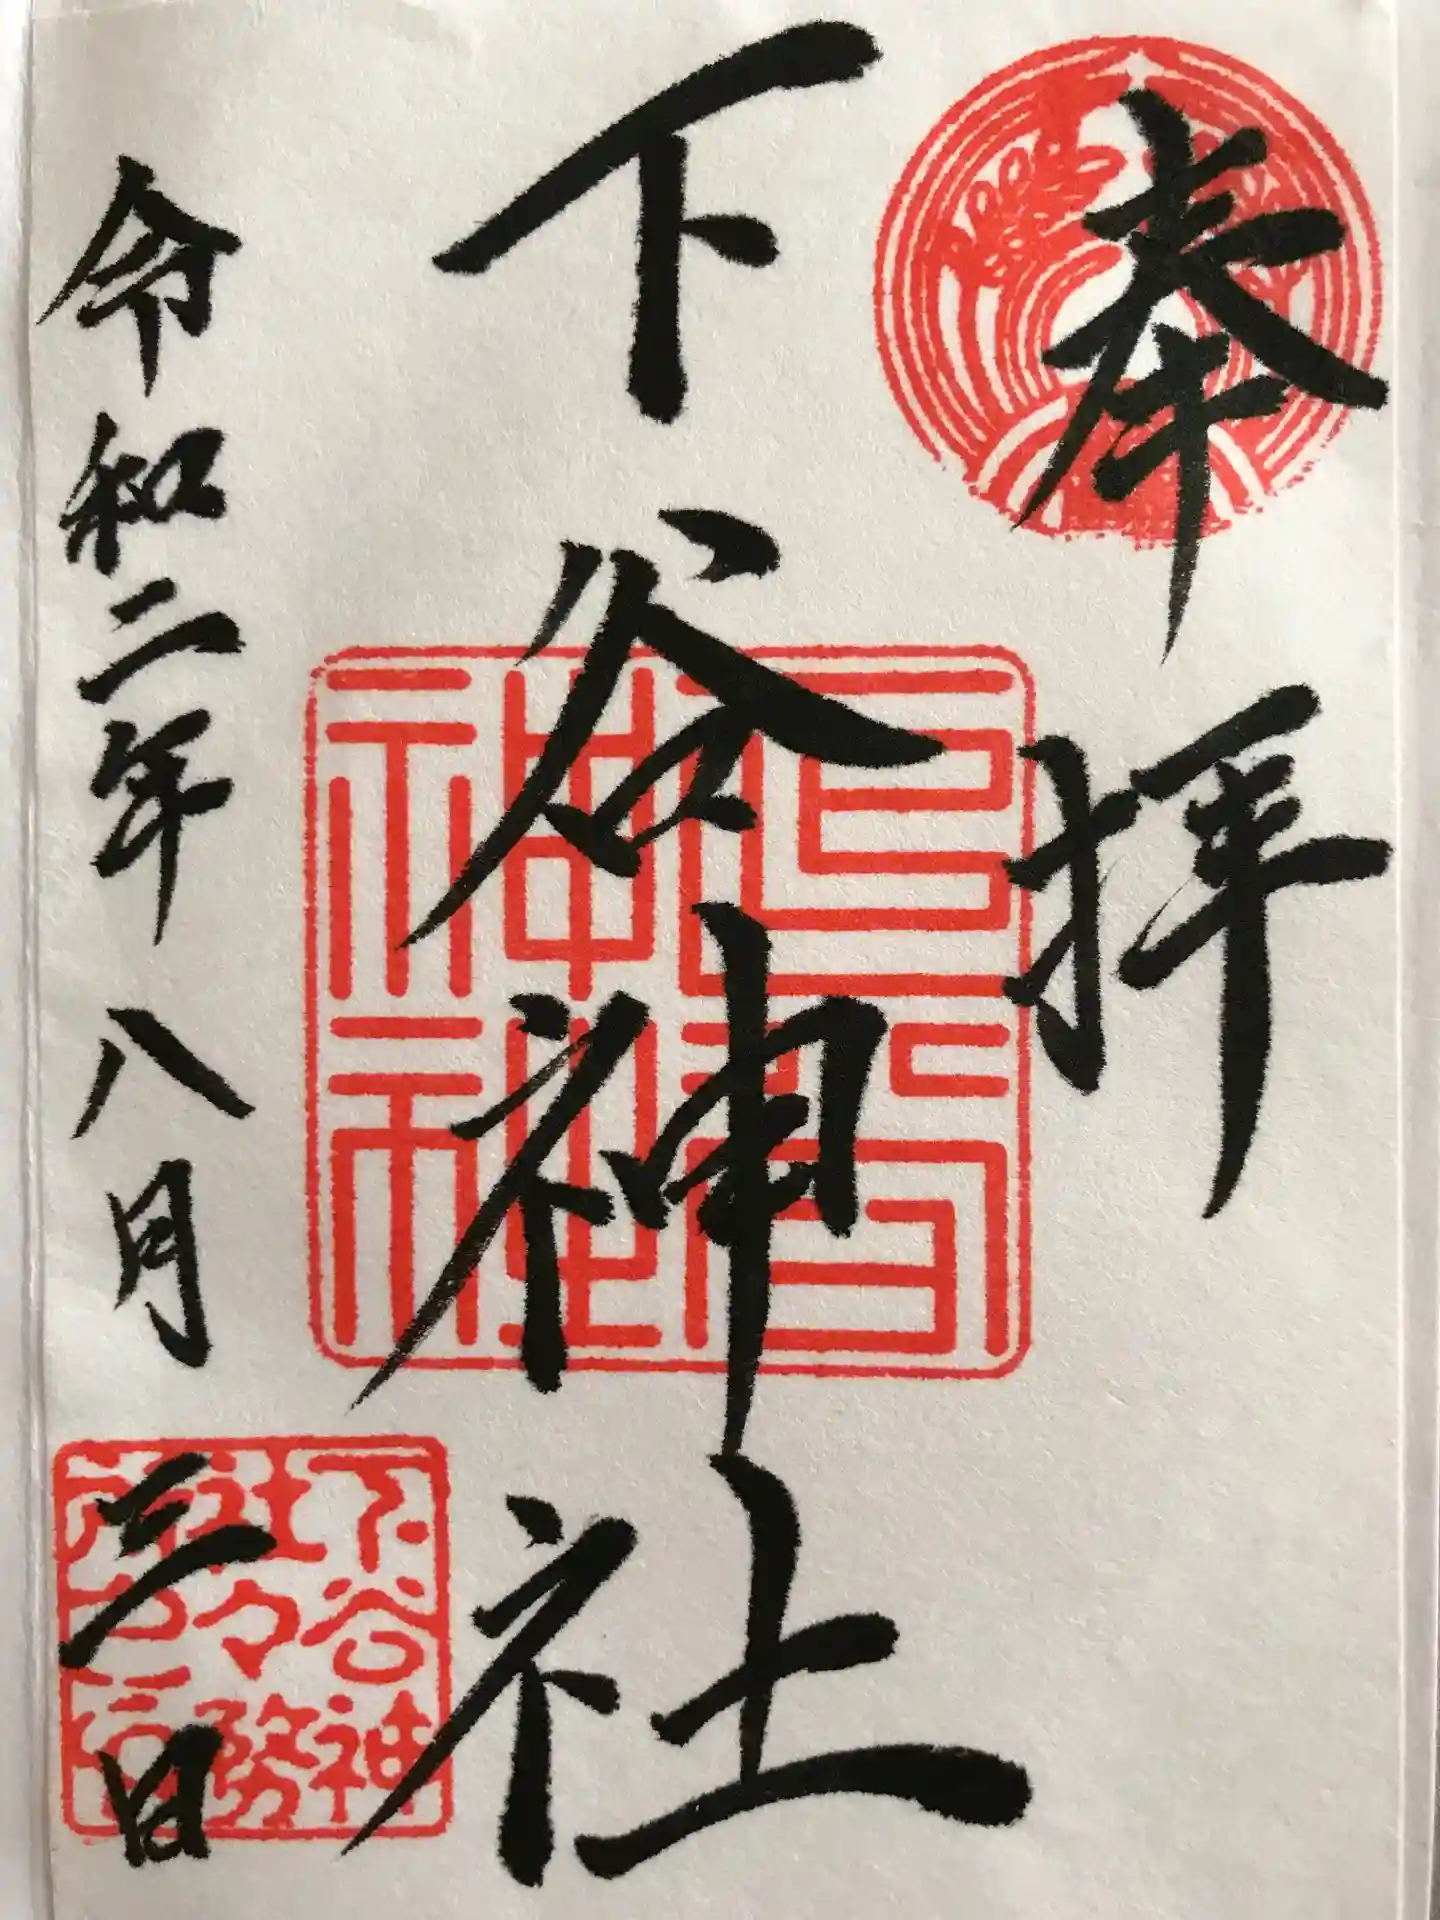 奉拝
下谷神社
令和二年八月三日
下谷神
社々務
所之印